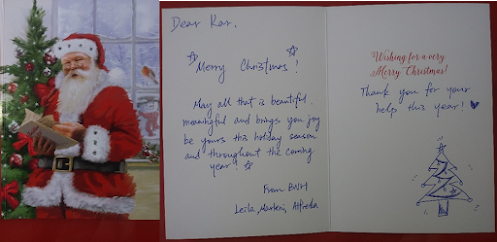 Dear Kar,
Merry Christmas!
May all that is beautiful
meaningful and brings you joy
be yours this holiday season
and throughout the coming
year!
From BWH
Leila, Marleni, Alfreda
Wishing for a very
Merry Christmas!
Thank you for your
help this year!